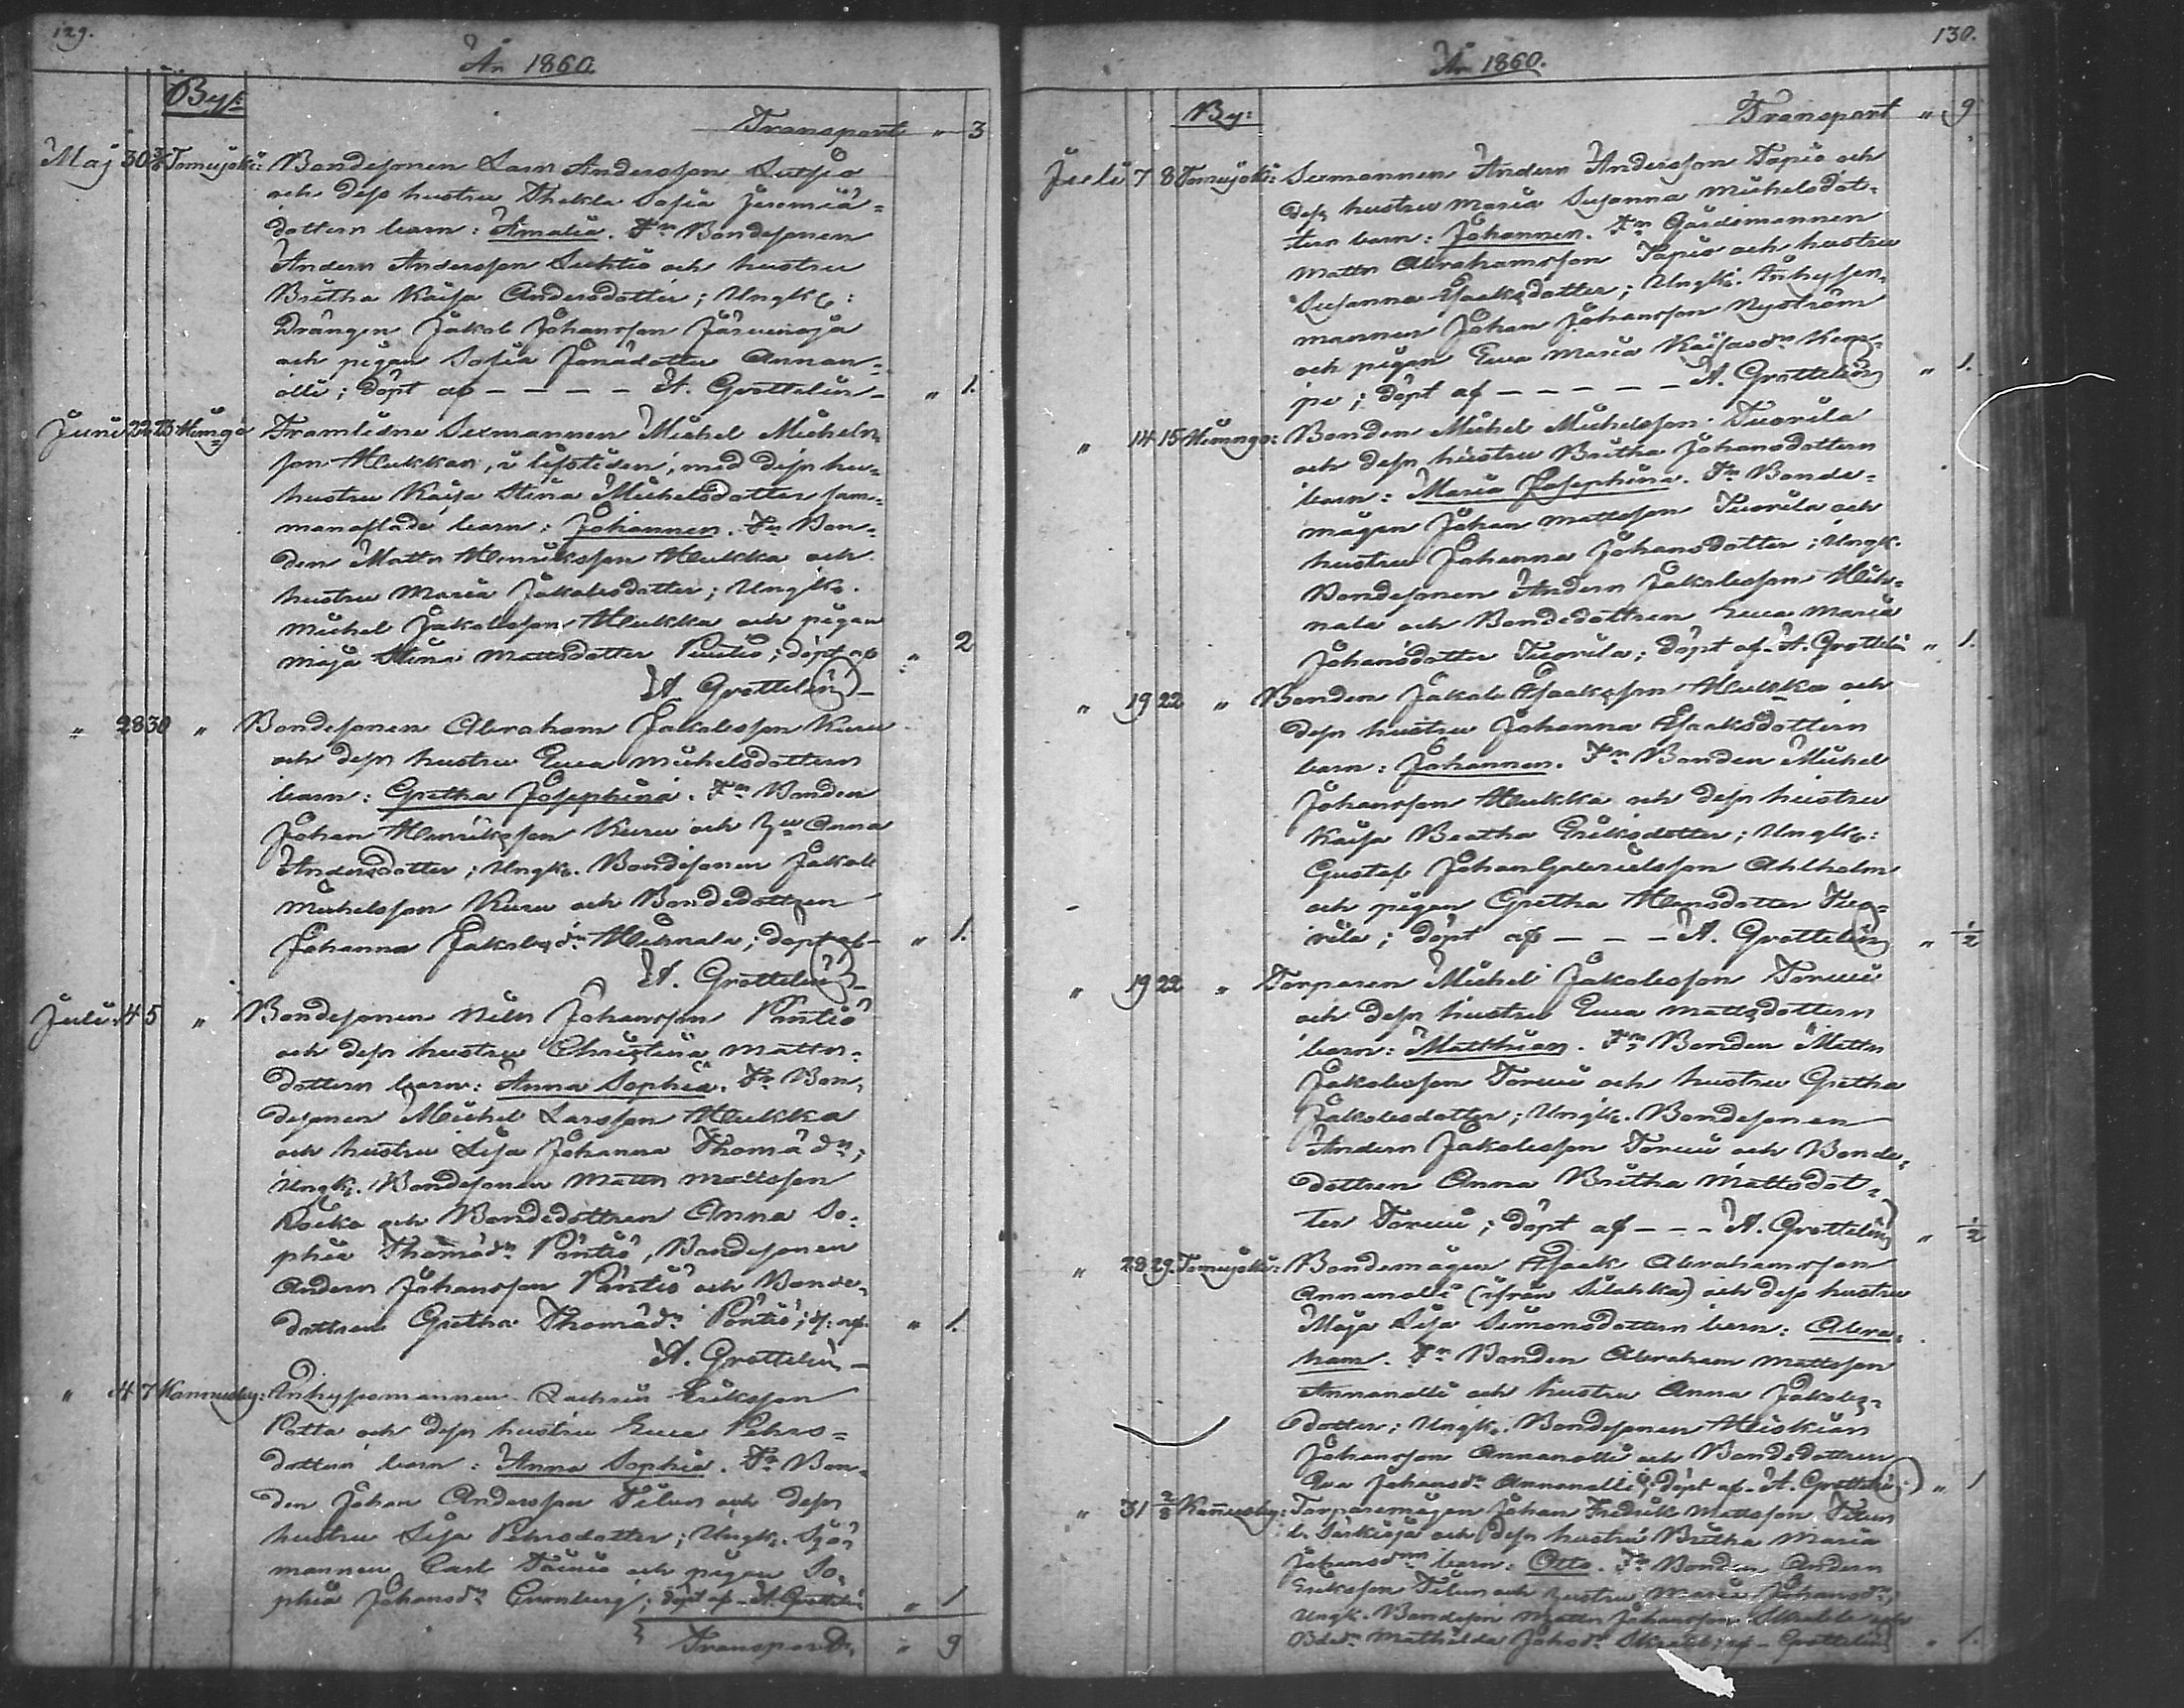 129.
År 1860.
By:
Transport " 3
Maj 30 3/6 Tomujoki: Bondesonen Lars Andersson
och dess hustru Thekla Sofia Jeremiä=
dottern barn: Amalia. Fr Bondesonen
Anders Andersson och hustru
Britha Kaisa Andersdotter; Ungk:
Drängen Jakob Johansson Järvinoja
och pigan Sofia Jonädotter Annan=
olli; döpt af – – – – A. Grottelin – " 1.
Juni 22 23 Himgo Framlidne Sexmannen Michel Michels
son Hlukkas, i lifstiden, med dess hu=
hustru Kaisa Stina Michelsdotter sam=
manaflade barn: Johannes. Fr Bon=
den Matts Henriksson Hlukka och
hustru Maria Jakobsdotter; Ungk.
Michel Jakobsson Hlukka och pigan
Maja Stina Mattsdotter Pöntiö; döpt af " 2
A. Grottelin –
" 28 30 " Bondesonen Abraham Jakobsson Kuru
och dess hustru Ewa Michelsdottern
barn: Gretha Josephina. Frn Bonden
Johan Henriksson Kuru och hu Anna
Andersdotter; Ungk. Bondesonen Jakob
Michelsson Kuru och Bondedottren
Johanna Jakobsdr Hihnala; döpt af – " 1.
A. Grottelin –
Juli 4 5 " Bondesonen Nils Johansson Pöntiö
och dess hustru Christina Matts=
dottern barn: Anna Sophia. Fr Bon=
desonen Michel Larsson Hlukka
och hustru Lisa Johanna Thomädr;
Ungk. Bondesonen Matts Mattsson
och Bondedottren Anna So=
phia Thomädr Pöntiö, Bondesonen
Anders Johansson Pöntiö och Bonde=
dottren Gretha Thomädr Pöntiö; d. af " 1.
A. Grottelin –
" 4 7 Kannusby: Inhysesmannen Zachris Eriksson
Potta och dess hustru Ewa Pehrs=
dottern barn: Anna Sophia. Fr Bon=
den Johan Andersson Tilus och dess
hustru Lisa Pehrsdotter; Ungk. Sjö=
mannen Carl och pigan So=
phia Johansdr; döpt af – A. Grottelin " 1
Transport " 9
130.
År 1860.
By:
Transport " 9
Juli 7 8 Tomujoki: Sexmannen Anders Andersson Tapio och
dess hustru Maria Susanna Michelsdot=
tern barn: Johannes. Frn Gårdsmannen
Matts Abrahamsson Tapio och hustru
Susanna Isaaksdotter; Ungk. Inhyses=
mannen Johan Johansson Nyström
och pigan Ewa Maria Kaisasdr Kem=
pe; döpt af – – – – – A. Grottelin " 1.
" 14 15 Himango: Bonden Michel Michelsson Tuorila
och dess hustru Britha Johansdottern
barn: Maria Josephina. Fr Bonde=
mågen Johan Mattsson Tuorila och
hustru Johanna Johansdotter; Ungk.
Bondesonen Anders Jakobsson Hih=
nala och Bondedottren Ewa Maria
Johansdotter Tuorila; döpt af – A. Grottelin " 1.
" 19 22 " Bonden Jakob Isaaksson Hlukka och
dess hustru Johanna Isaaksdottern
barn: Johannes. Frn Bonden Michel
Johansson Hlukka och dess hustru
Kaisa Beatha Eriksdotter; Ungk:
Gustaf Johan Gabrielsson Ahlholm
och pigan Gretha Hansdotter Tuo=
rila; döpt af – – – A. Grottelin " 1/2
" 19 22 " Torparen Michel Jakobsson Torvi
och dess hustru Ewa Mattsdottern
barn: Matthias. Frn Bonden Matts
Jakobsson Torvi och hustru Gretha
Jakobsdotter; Ungk. Bondesonen
Anders Jakobsson Torvi och Bonde=
dottren Anna Britha Mattsdot=
ter Torvi; döpt af – – – A. Grottelin " 1/2
" 28 29. Tomujoki: Bondemågen Isaak Abrahamsson
Annanolli (ifrån Silahka) och dess hustru
Maja Lisa Simonsdottern barn: Abra=
ham. Frn Bonden Abraham Mattsson
Annanolli och hustru Anna Jakobs=
dotter; Ungk. Bondesonen Hiskias
Johansson Annanolli och Bondedottren
Johansdr Annanolli; döpt af – A. Grottelin " 1
" 31 2/8 Kannusby: Torparemågen Johan Fredrik Mattsson Tilus
l. Särkioja och dess hustru Britha Maria
Johansdrn barn: Otto. Frn Bonden Anders
Eriksson Tilus och hustru Maria Johansdr;
Ungk. Bondeson Matts Johansson och
Bdedr Mathilda Johsdr; af – Grottelin " 1.